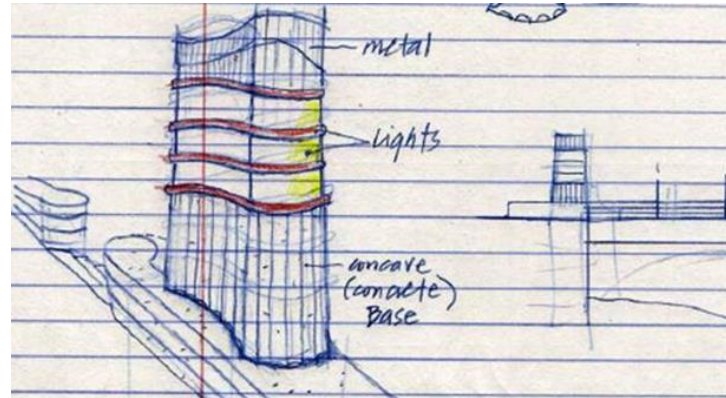 metal
Lights
concave
(concrete)
Base